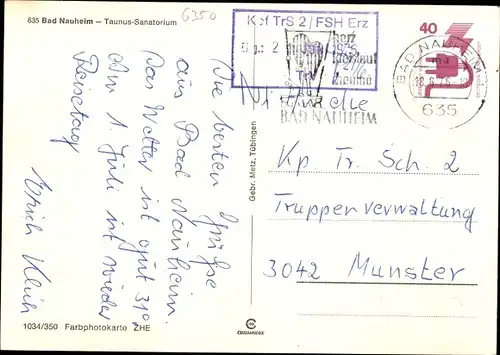 635 Bad Nauheim – Taunus-Sanatorium
6350
Die besten Grüße
aus Bad Nauheim.
Das Wetter ist gut 31°
Am 1. Juli ist wieder
Reisetag
Ulrich Klich
1034/350 Farbphotokarte ZHE
Gebr. Metz, Tübingen
Kpf TrS 2/FSH Erz
Eing.: 2
1975
Herz
Kreislauf
Rheuma
BAD NAUHEIM
40
BAD NAUHEIM
635
Kp. Tr. Sch. 2
Truppenverwaltung
3042 Munster